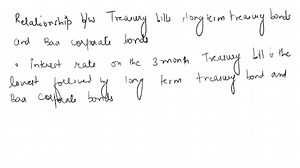 Relationship b/w Treasury bills, long term treasury bonds
and Baa corporate bonds
• interest rate on the 3 month Treasury bill is the
lowest followed by long term treasury bond and
Baa corporate bonds